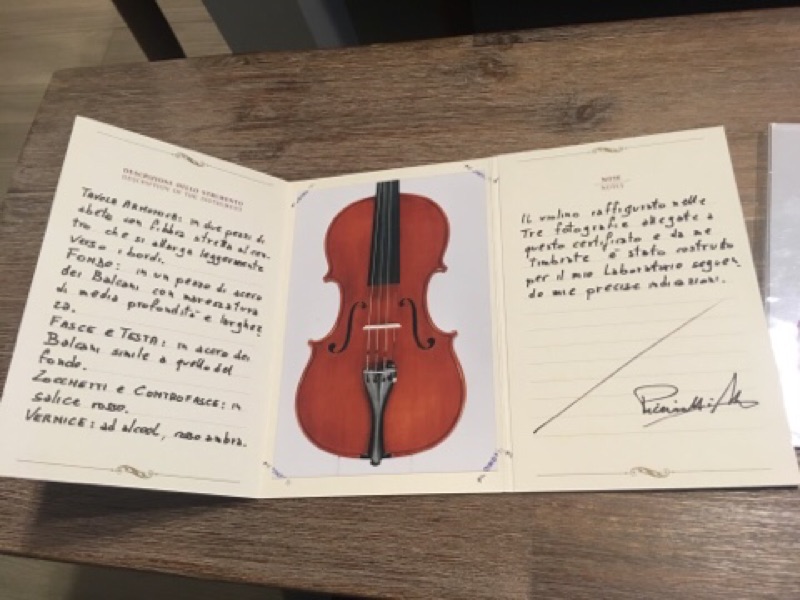 DESCRIZIONE DELLO STRUMENTO
DESCRIPTION OF THE INSTRUMENT
TAVOLA ARMONICA: in due pezzi di
abete con fibbra stretta al cen-
tro che si allarga leggermente
verso i bordi.
FONDO: in un pezzo di acero
dei Balcani con marezzatura
di media profondità e larghez
za.
FASCE E TESTA: in acero dei
Balcani simile a quello del
fondo.
ZOCCHETTI E CONTROFASCE: in
salice rosso.
VERNICE: ad alcool, rosso ambra.
NOTE
NOTES
Il violino raffigurato nelle
Tre fotografie allegate a
questo certificato e da me
Timbrate è stato costruito
per il mio Laboratorio seguen
do mie precise indicazioni.